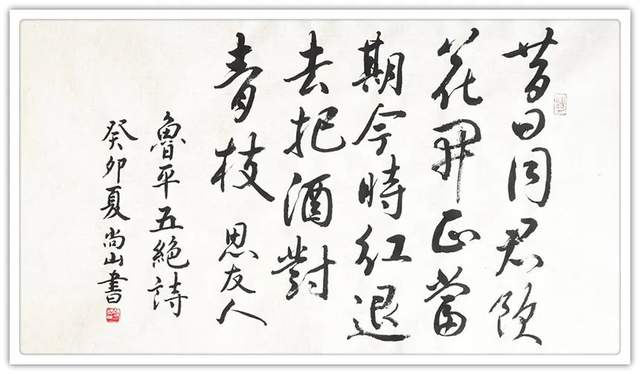 昔日同君飲
花開正當
期今時紅退
去把酒對
青枝 思友人
魯平五絶詩
癸卯夏尚山書